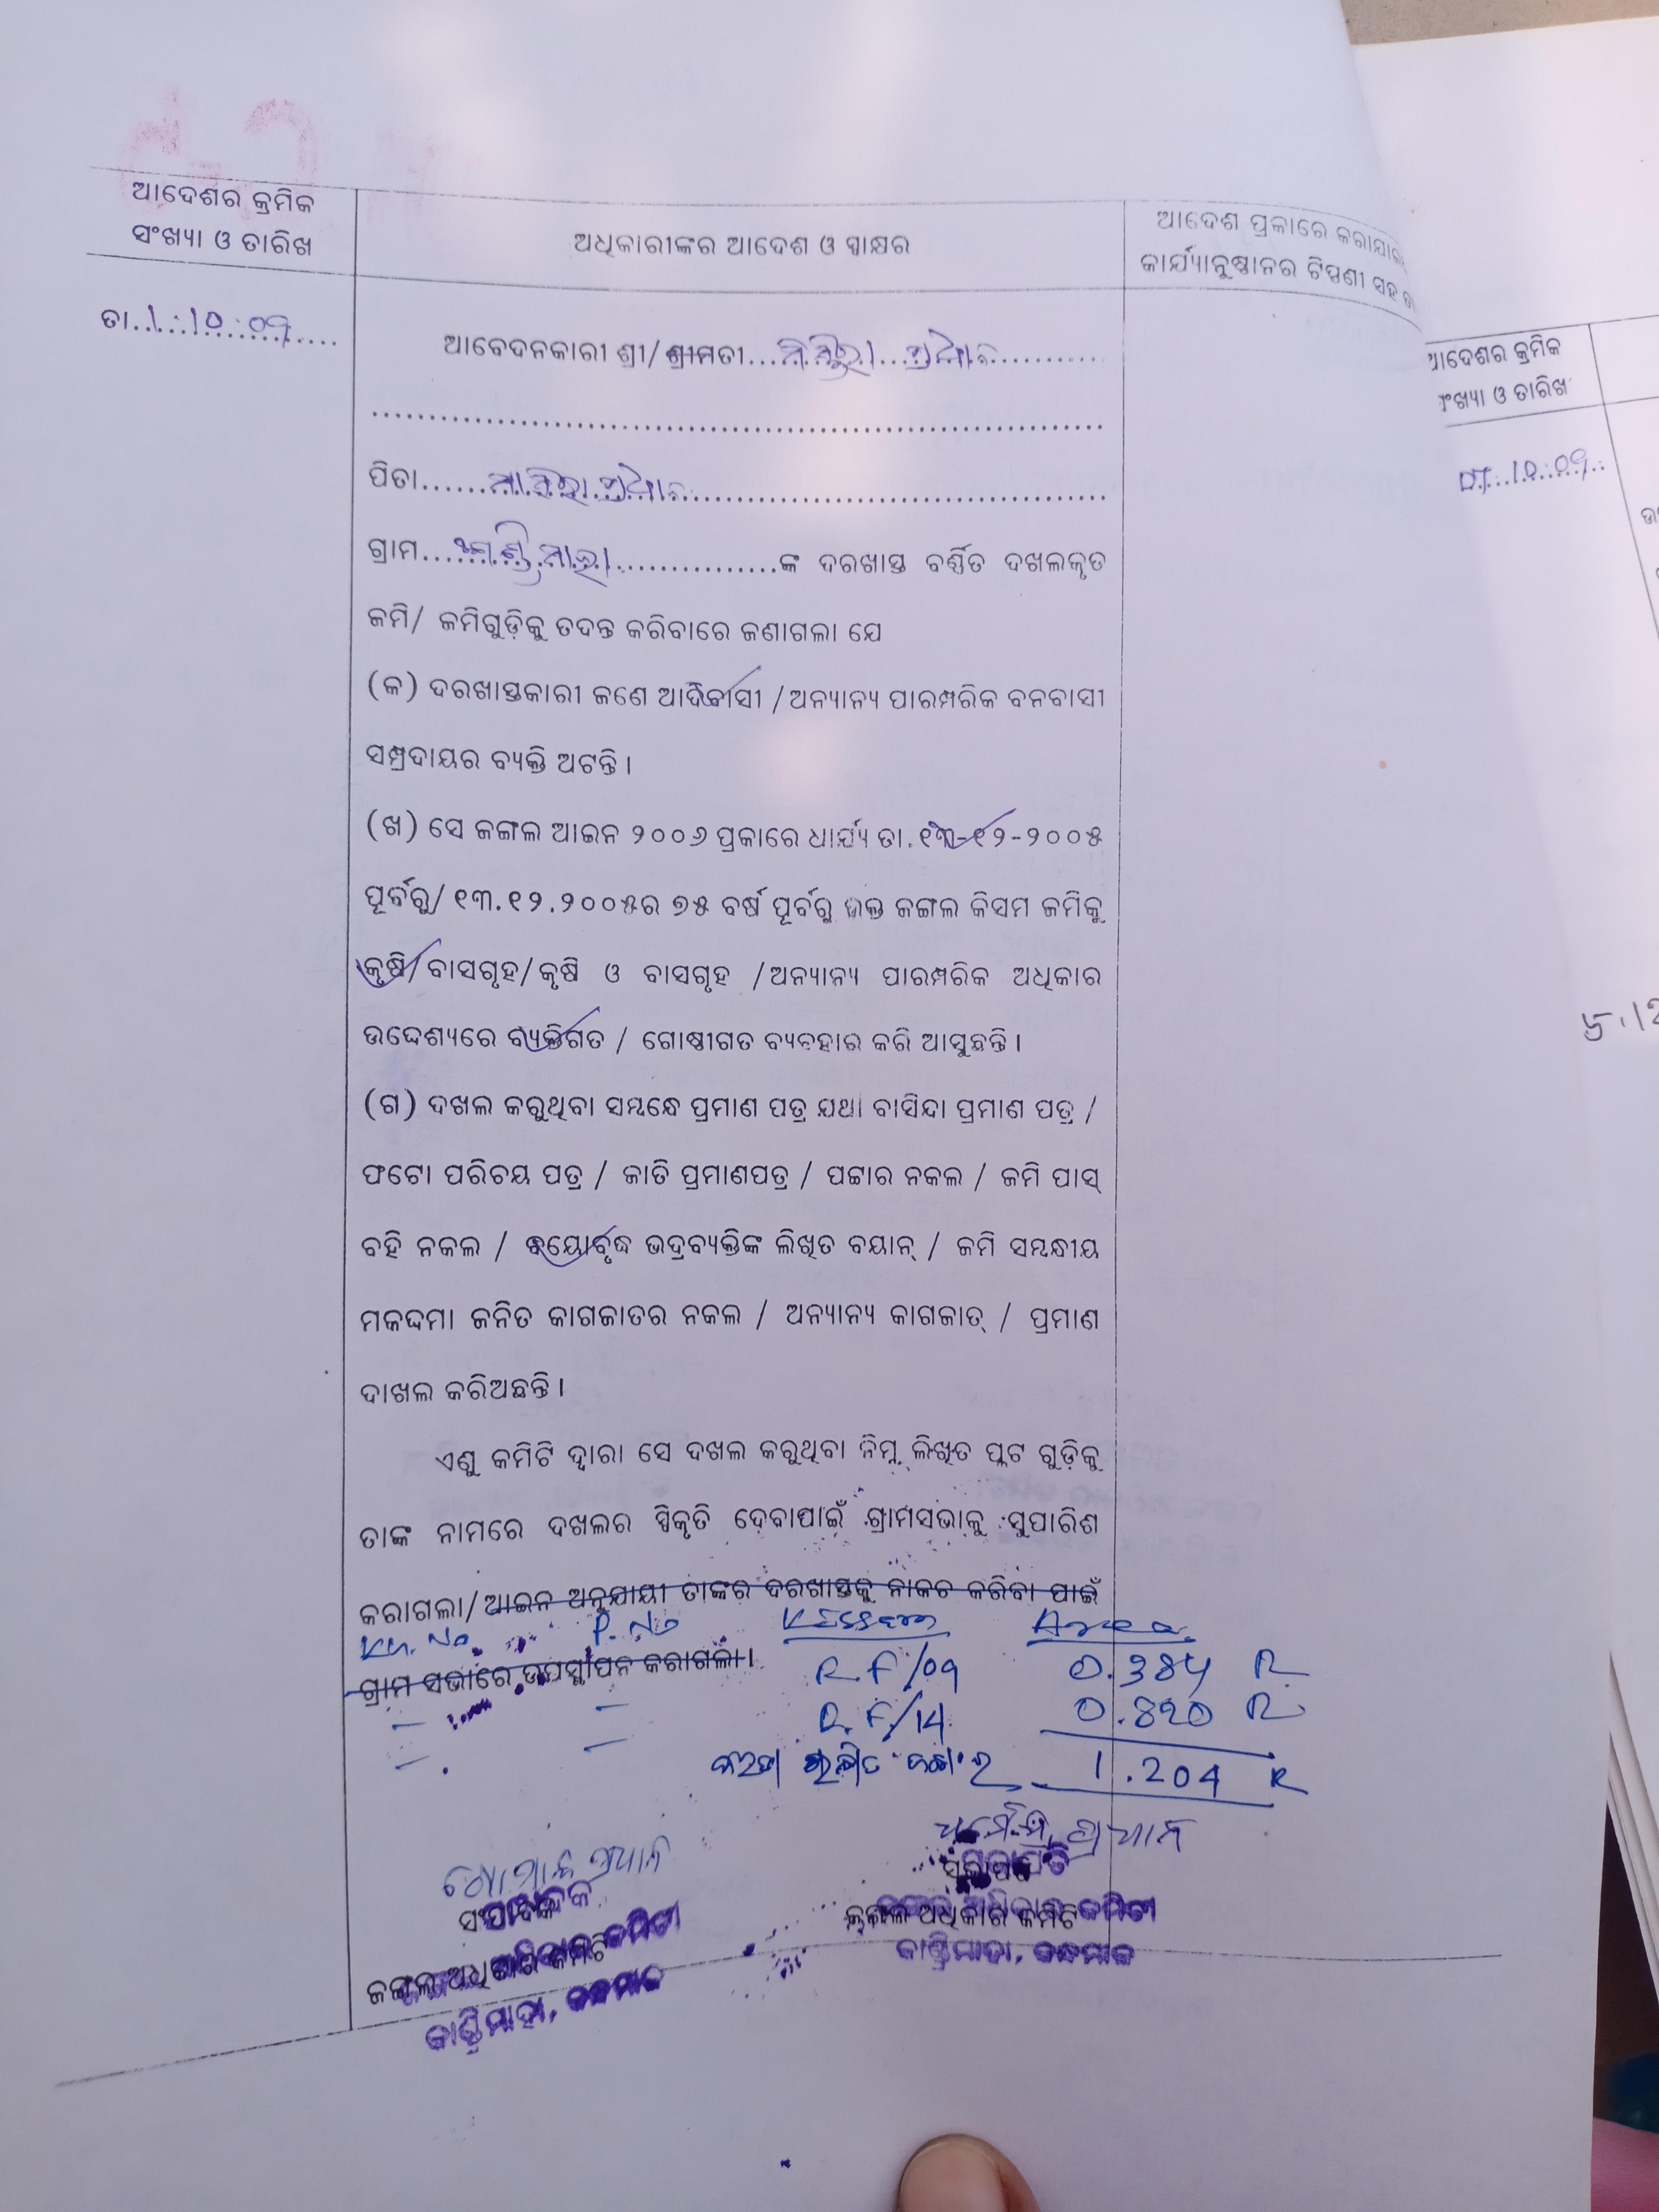 ଆଦେଶର କ୍ରମିକ
ସଂଖ୍ୟା ଓ ତାରିଖ
ଅଧିକାରୀଙ୍କର ଆଦେଶ ଓ ସ୍ୱାକ୍ଷର
ଆଦେଶ ପ୍ରକାରେ
କାର୍ଯ୍ୟାନୁଷ୍ଠାନର ଟିପ୍ପଣୀ ସହ
ତା. 1.10.09
ଆବେଦନକାରୀ ଶ୍ରୀ/ ଶ୍ରୀମତୀ... ପ୍ରଧାନ
ପିତା...... ପ୍ରଧାନ
ଗ୍ରାମ... ...ଙ୍କ ଦରଖାସ୍ତ ବର୍ଣ୍ଣିତ ଦଖଲକୃତ
ଜମି/ ଜମିଗୁଡ଼ିକୁ ତଦନ୍ତ କରିବାରେ ଜଣାଗଲା ଯେ
(କ) ଦରଖାସ୍ତକାରୀ ଜଣେ ଆଦିବାସୀ / ଅନ୍ୟାନ୍ୟ ପାରମ୍ପରିକ ବନବାସୀ
ସମ୍ପ୍ରଦାୟର ବ୍ୟକ୍ତି ଅଟନ୍ତି।
(ଖ) ସେ ଜଙ୍ଗଲ ଆଇନ ୨୦୦୬ ପ୍ରକାରେ ଧାର୍ଯ୍ୟ ତା. ୧୩-୧୨-୨୦୦୫
ପୂର୍ବରୁ/ ୧୩.୧୨.୨୦୦୫ର ୭୫ ବର୍ଷ ପୂର୍ବରୁ ଉକ୍ତ ଜଙ୍ଗଲ କିସମ ଜମିକୁ
କୃଷି/ ବାସଗୃହ/ କୃଷି ଓ ବାସଗୃହ / ଅନ୍ୟାନ୍ୟ ପାରମ୍ପରିକ ଅଧିକାର
ଉଦ୍ଦେଶ୍ୟରେ ବ୍ୟକ୍ତିଗତ / ଗୋଷ୍ଠୀଗତ ବ୍ୟବହାର କରି ଆସୁଛନ୍ତି।
(ଗ) ଦଖଲ କରୁଥିବା ସମ୍ବନ୍ଧେ ପ୍ରମାଣ ପତ୍ର ଯଥା ବାସିନ୍ଦା ପ୍ରମାଣ ପତ୍ର /
ଫଟୋ ପରିଚୟ ପତ୍ର / ଜାତି ପ୍ରମାଣପତ୍ର / ପଟ୍ଟାର ନକଲ / ଜମି ପାସ୍
ବହି ନକଲ / ବୟୋବୃଦ୍ଧ ଭଦ୍ରବ୍ୟକ୍ତିଙ୍କ ଲିଖିତ ବୟାନ୍ / ଜମି ସମ୍ବନ୍ଧୀୟ
ମକଦ୍ଦମା ଜନିତ କାଗଜାତର ନକଲ / ଅନ୍ୟାନ୍ୟ କାଗଜାତ୍ / ପ୍ରମାଣ
ଦାଖଲ କରିଅଛନ୍ତି।
ଏଣୁ କମିଟି ଦ୍ୱାରା ସେ ଦଖଲ କରୁଥିବା ନିମ୍ନ ଲିଖିତ ପ୍ଲଟ ଗୁଡ଼ିକୁ
ତାଙ୍କ ନାମରେ ଦଖଲର ସ୍ୱିକୃତି ଦେବାପାଇଁ ଗ୍ରାମସଭାକୁ ସୁପାରିଶ
କରାଗଲା/ ଆଇନ ଅନୁଯାୟୀ ତାଙ୍କର ଦରଖାସ୍ତକୁ ନାକଚ କରିବା ପାଇଁ
Kh. No P. No Kissam Area
ଗ୍ରାମ ସଭାରେ ଉପସ୍ଥାପନ କରାଗଲା।
R.F/09 0.384 R
R.F/14 0.820 R
1.204 R
ପ୍ରଧାନ
ପ୍ରଧାନ
ସଂପାଦକ
ସଭାପତି
ଜଙ୍ଗଲ ଅଧିକାର କମିଟି
ଜଙ୍ଗଲ ଅଧିକାର କମିଟି
ଆଦେଶର କ୍ରମିକ
ସଂଖ୍ୟା ଓ ତାରିଖ